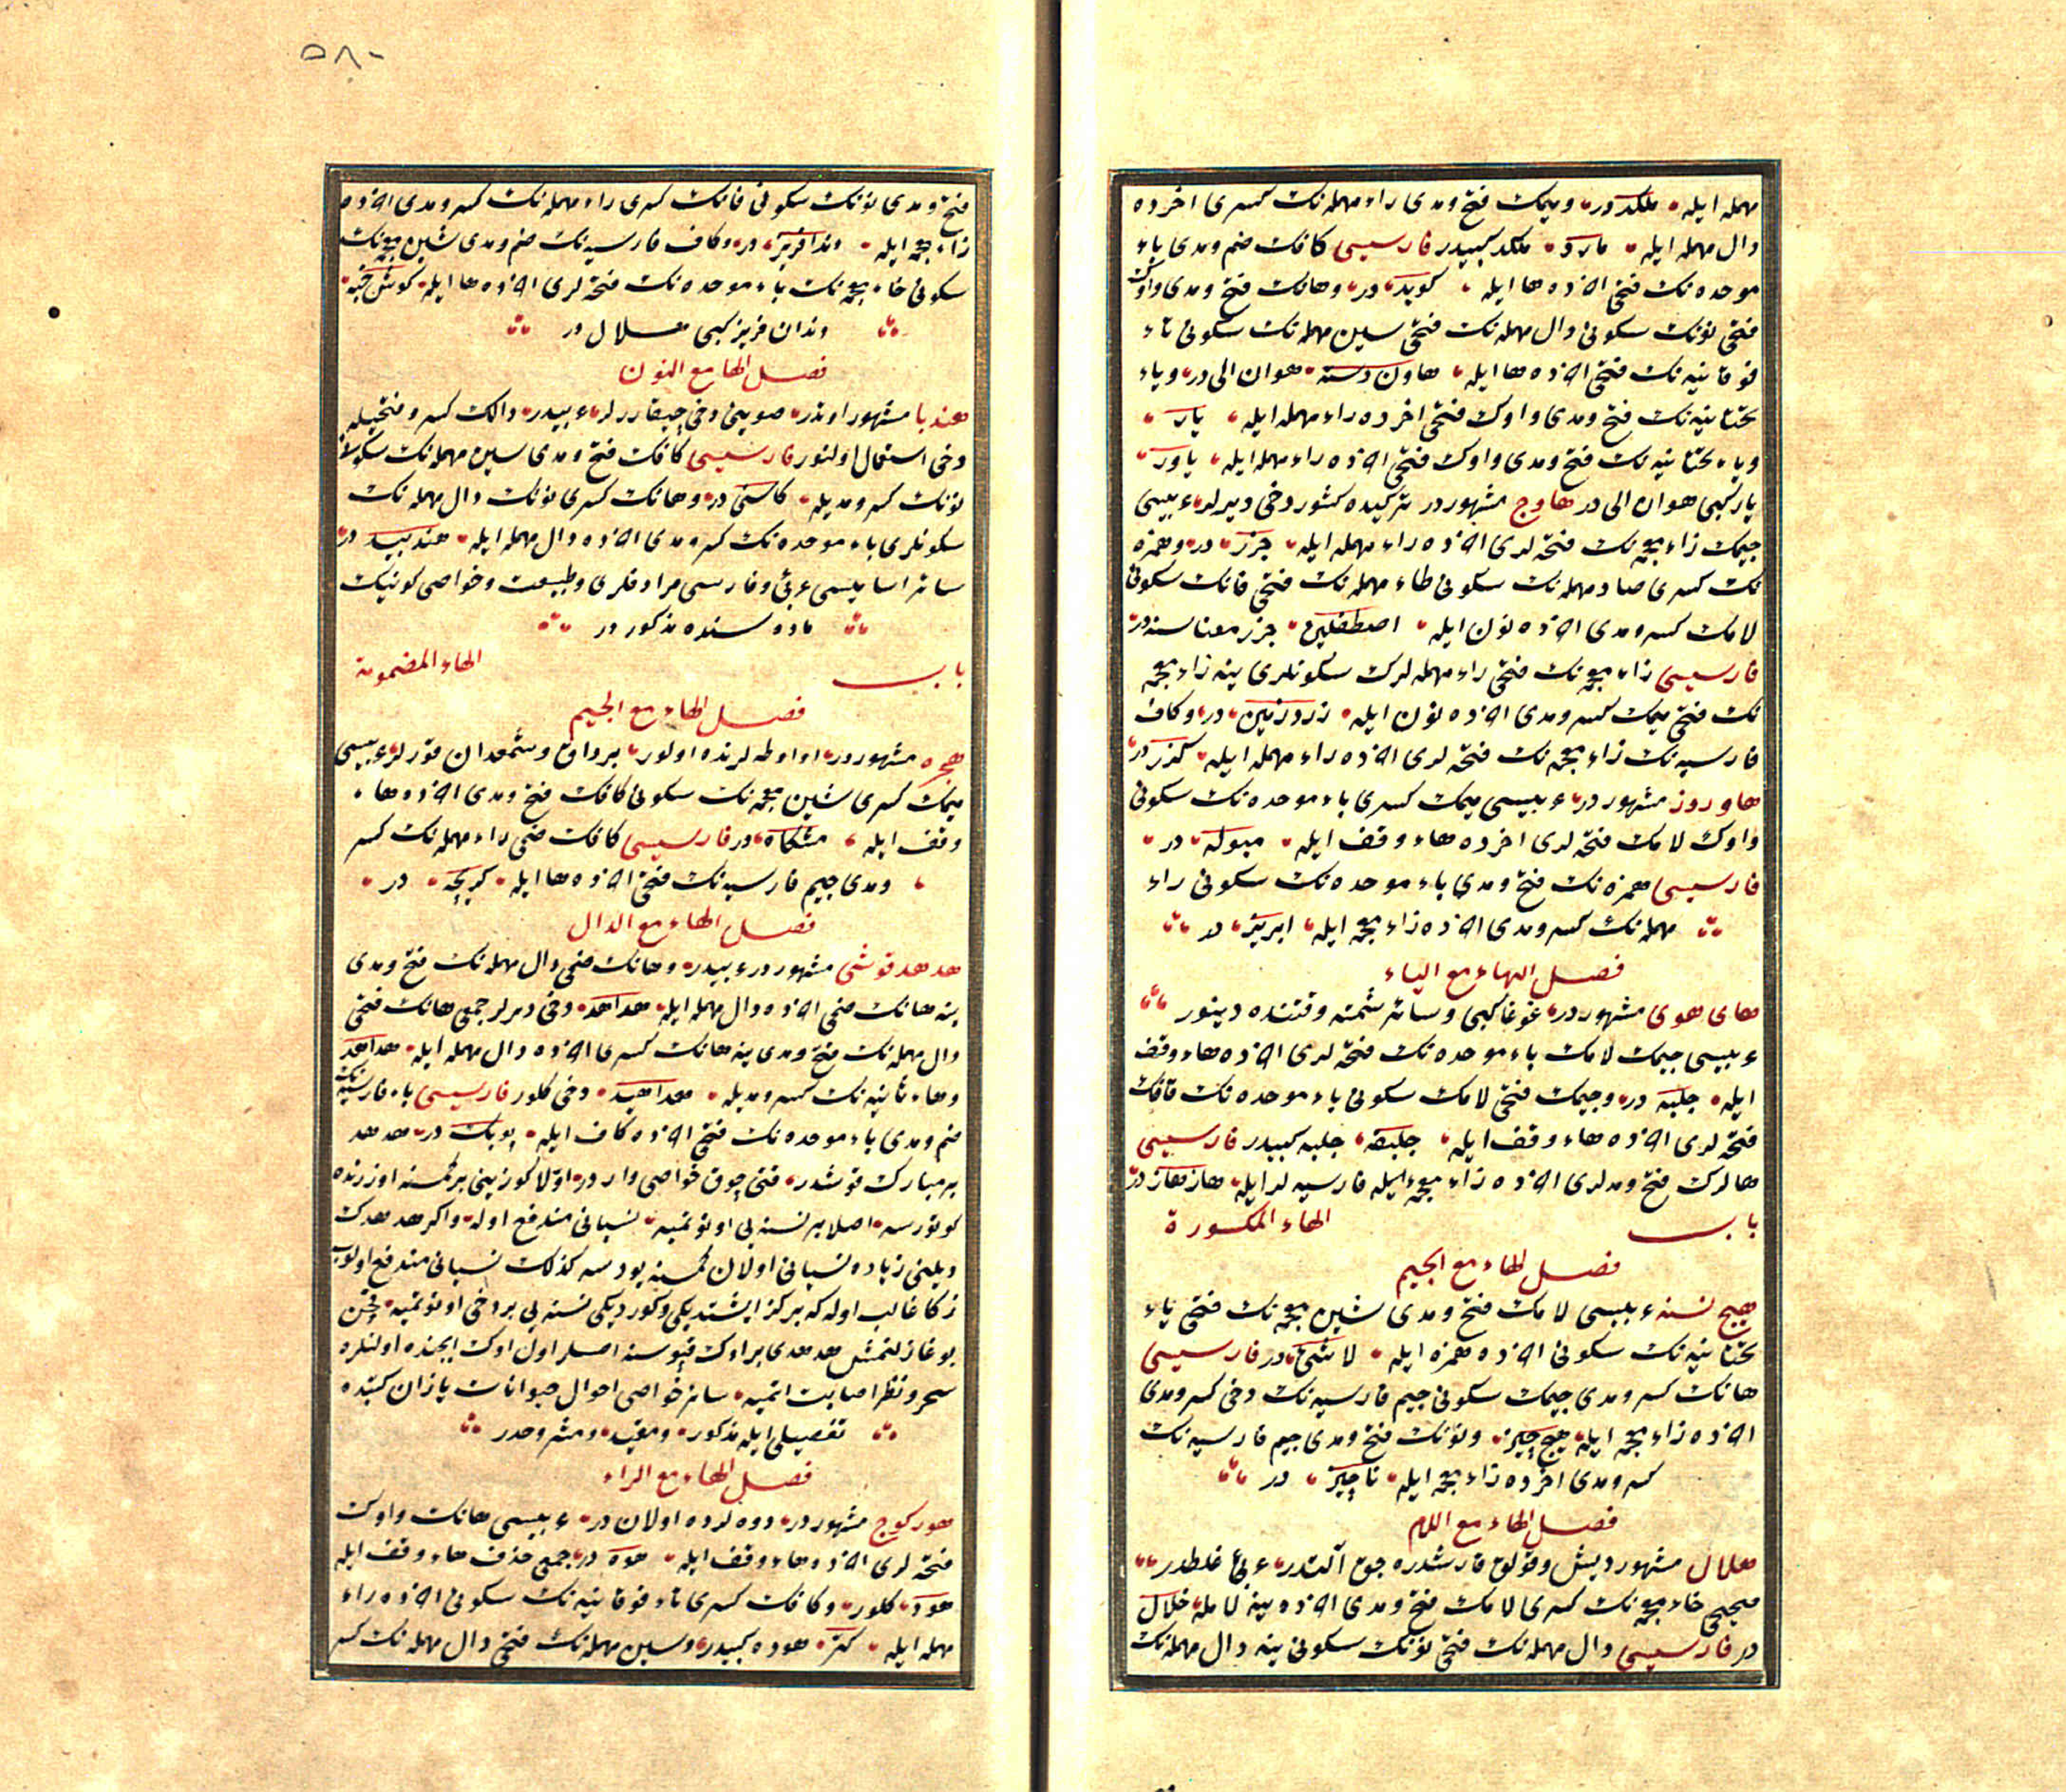 مهمله ایله ملکددر ومیمك فتح ومدی راء مهمله نك كسری اخرده
دال مهمله ایله مارد ملكد كبیدر فارسیسی كافك ضم ومدی باء
موحده نك فتحی اخرده ها ایله كوبه در وهانك فتح ومدی واوك
فتحی نونك سكونی دال مهمله نك فتحی سین مهمله نك سكونی تاء
فوقانیه نك فتحی اخرده ها ایله هاون دسته هوان الی در ویاء
تحتانیه نك فتح ومدی واوك فتحی اخرده راء مهمله ایله یار
ویاء تحتانیه نك فتح ومدی واوك فتحی اخرده راء مهمله ایله یاور
یار كبی هوان الی در هاوج مشهوردر تركیده كشور دخی دیرلر عربیسی
جیمك زاء معجمه نك فتحه لری اخرده راء مهمله ایله جزر در وهمزه
نك كسری صاد مهمله نك سكونی طاء مهمله نك فتحی فانك سكونی
لامك كسر ومدی اخرده نون ایله اصطفلین جزر معناسنه در
فارسیسی زاء معجمه نك فتحی راء مهمله لرك سكونلری ینه زاء معجمه
نك فتحی میمك كسر ومدی اخرده نون ایله در وكاف
فارسیه نك زاء معجمه نك فتحه لری اخرده راء مهمله ایله كزر در
هاوروز مشهوردر عربیسی میمك كسری باء موحده نك سكونی
واوك لامك فتحه لری اخرده هاء وقف ایله مبوله در
فارسیسی همزه نك فتح ومدی باء موحده نك سكونی راء
مهمله نك كسر ومدی اخرده زاء معجمه ایله ابریز در
فصل الهاء مع الیاء
های هوی مشهوردر غوغا كبی وسائر شمته وقتنده دینور
عربیسی جیمك لامك باء موحده نك فتحه لری اخرده هاء وقف
ایله جلبه در وجیمك فتحی لامك سكونی باء موحده نك قافك
فتحه لری اخرده هاء وقف ایله جلبقه جلبه كبیدر فارسیسی
هالرك فتح ومدلری اخرده زاء معجمه ایله فارسیه لر ایله در
باب الهاء المكسورة
فصل الهاء مع الجیم
هیچ نسنه عربیسی لامك فتح ومدی شین معجمه نك فتحی یاء
تحتانیه نك سكونی اخرده همزه ایله لاشئ در فارسیسی
هانك كسر ومدی جیمك سكونی جیم فارسیه نك دخی كسر ومدی
اخرده زاء معجمه ایله هیچ چیز ونونك فتح ومدی جیم فارسیه نك
كسر ومدی اخرده زاء معجمه ایله ناچیز در
فصل الهاء مع اللام
هلال مشهور دیش وقولاق قارشدره جق آلتدر عربی غلطدر
صحیحی خاء معجمه نك كسری لامك فتح ومدی اخرده ینه لامله خلال
در فارسیسی دال مهمله نك فتحی نونك سكونی ینه دال مهمله نك
٥٨٠
فتح ومدی نونك سكونی فانك كسری راء مهمله نك كسر ومدی اخرده
زاء معجمه ایله دندافریز در وكاف فارسیه نك ضم ومدی شین معجمه نك
سكونی خاء معجمه نك باء موحده نك فتحه لری اخرده ها ایله كوش خبه
دندان فریز كبی هلال در
فصل الها مع النون
هندبا مشهور اوتدر صوینی دخی چیقاررلر عربیدر دالك كسر وفتحیله
دخی استعمال اولنور فارسیسی كافك فتح ومدی سین مهمله نك سكونی
نونك كسر ومدیله كاسنی در وهانك كسری نونك دال مهمله نك
سكونلری باء موحده نك كسر ومدی اخرده دال مهمله ایله هندبید در
سائر اسامیسی عربی وفارسی مرادفلری وطبیعت وخواصی كونیك
ماده سنده مذكوردر
باب الهاء المضمومة
فصل الهاء مع الجیم
هجره مشهوردر او اوطه لرنده اولور بردا‍ق وشمعدان قورلر عربیسی
میمك كسری شین معجمه نك سكونی كافك فتح ومدی اخرده هاء
وقف ایله مشكاة در فارسیسی كافك ضمی راء مهمله نك كسر
ومدی جیم فارسیه نك فتحی اخرده ها ایله كریچه در
فصل الهاء مع الدال
هدهد قوشی مشهوردر عربیدر وهانك ضمی دال مهمله نك فتح ومدی
ینه هانك ضمی اخرده دال مهمله ایله هداهد دخی دیرلر جمعی هانك فتحی
دال مهمله نك فتح ومدی ینه هانك كسری اخرده دال مهمله ایله هداهد
وهاء ثانیه نك كسر ومدیله هداهید دخی كلور فارسیسی باء فارسیه نك
ضم ومدی باء موحده نك فتحی اخرده كاف ایله پوپك در هدهد
بر مبارك قوشدر قتی چوق خواصی واردر اولا كوزینی بر كمسنه اوزرنده
كوتورسه اصلا بر نسنه یی اونوتمیه نسیانی مندفع اوله واكر هدهدك
دیلینی زیاده نسیانی اولان كمسنه یودسه كذلك نسیانی مندفع اولوب
ذكا غالب اوله كه بر كز ایشتدیكی وكوردیكی نسنه یی بر دخی اونوتمیه
بوغازلنمش هدهدی بر اوك قپوسنه اصلر اول اوك ایچنده اولنلره
سحر ونظر اصابت اتمیه سائر خواصی احوال حیوانات یازان كتبده
تفصیلی ایله مذكور ومقید ومشروحدر
فصل الهاء مع الراء
هوركوج مشهوردر دوه لرده اولاندر عربیسی هانك واوك
فتحه لری اخرده هاء وقف ایله هوده در جمعی حذف هاء وقف ایله
هود كلور وكافك كسری تاء فوقانیه نك سكونی اخرده راء
مهمله ایله كتر هوده كبیدر وسین مهمله نك فتحی دال مهمله نك كسر